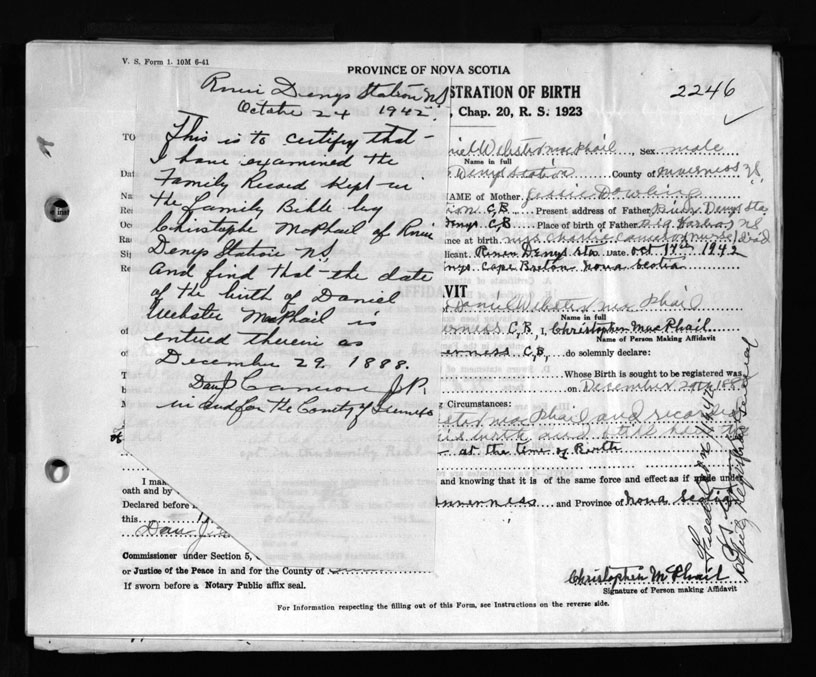 V. S. Form 1. 10M 6-41
PROVINCE OF NOVA SCOTIA
STRATION OF BIRTH
2246
, Chap. 20, R. S. 1923
River Denys Station NS
October 24 1942.
This is to certify that
I have examined the
Family Record Kept in
the family Bible by
Christopher McPhail of River
Denys Station N.S.
And find that the date
of the birth of Daniel
Webster MacPhail is
entered therein as
December 29. 1888.
Dan J Cameron J.P.
in and for the County of Inverness
TO
niel Webster MacPhail, Sex male
Name in full
Denys Station County of Inverness N.S.
NAME of Mother Jessie Dowling
tion C.B. Present address of Father River Denys Sta.
Denys C.B Place of Birth of Father N.S.
nce at birth (nurse) dead
licant. River Denys Sta. Date Oct 17th 1942
nys Cape Breton Nova Scotia
VIT
Daniel Webster MacPhail
Name in full
erness C,B, I, Christopher MacPhail
Name of Person Making Affidavit
erness C,B, do solemnly declare:
Whose Birth is sought to be registered was
on December
g Circumstances:
MacPhail and
at the time of Birth
and knowing that it is of the same force and effect as if made under
Inverness and Province of Nova Scotia
I mak
oath and by
Declared before
this
Dan J.
Commissioner under Section 5,
or Justice of the Peace in and for the County of
If sworn before a Notary Public affix seal.
Christopher McPhail
Signature of Person making Affidavit
For Information respecting the filling out of this Form, see Instructions on the reverse side.